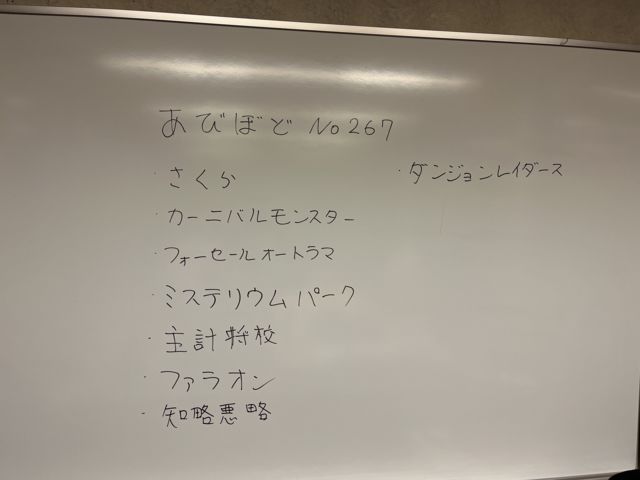 あびぼど No267
・さくら
・カーニバルモンスター
・フォーセールオートラマ
・ミステリウムパーク
・主計将校
・ファラオン
・知略悪略
・ダンジョンレイダース